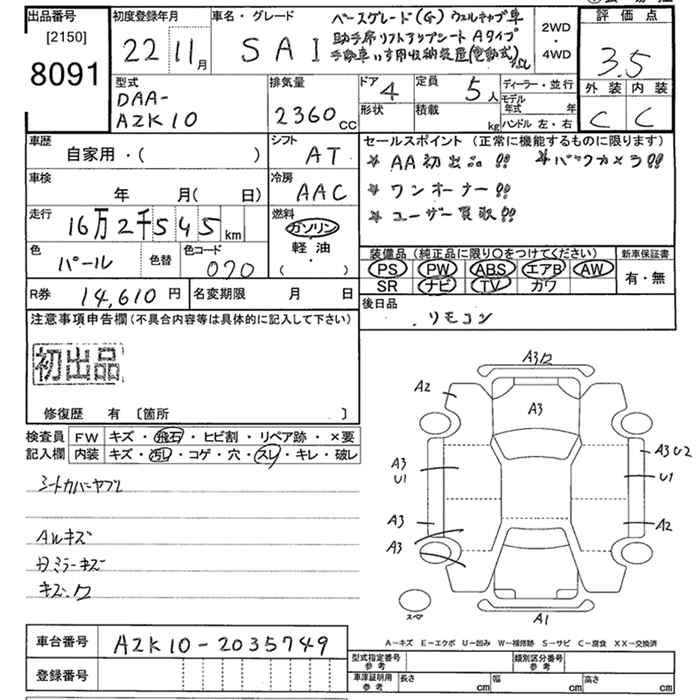 出品番号
[2150]
8091
初度登録年月
22 11月
車名・グレード
SAI
ベースグレード(G) ウェルキャブ車
助手席リフトアップシート Aタイプ
手動車いす用収納装置(電動式)
2WD
・
4WD
評価点
3.5
外装 内装
C C
型式
DAA-
AZK10
排気量
2360cc
ドア 4
定員 5人
形状
積載 kg
ディーラー・並行
モデル年式 年
ハンドル 左・右
車歴
自家用・( )
シフト
AT
車検
年 月( 日)
冷房
AAC
走行
16万2千545km
燃料
ガソリン
軽油
( ・ )
色
パール
色替
色コード
070
R券 14,610円
名変期限 月 日
セールスポイント(正常に機能するものに限ります)
* AA初出品!! *バックカメラ!!
* ワンオーナー!!
* ユーザー買取!!
装備品(純正品に限り〇をつけてください)
PS PW ABS エアB AW
SR ナビ TV カワ
新車保証書
有・無
後日品
リモコン
注意事項申告欄(不具合内容等は具体的に記入して下さい)
初出品
修復歴 有 〔箇所 〕
検査員
記入欄
FW キズ・飛石・ヒビ割・リペア跡・×要
内装 キズ・汚れ・コゲ・穴・スレ・キレ・破レ
シートカバーヤブレ
Aルキズ
キズ.ワ
A3
A2
A3
A3
U1
A3U2
U1
A3
A2
A3
A1
スペア
A-キズ E-エクボ U-凹み W-補修跡 S-サビ C-腐食 XX-交換済
車台番号 AZK10-2035749
登録番号
型式指定番号
参考
類別区分番号
参考
車庫証明用
参考
長さ cm 幅 cm 高さ cm